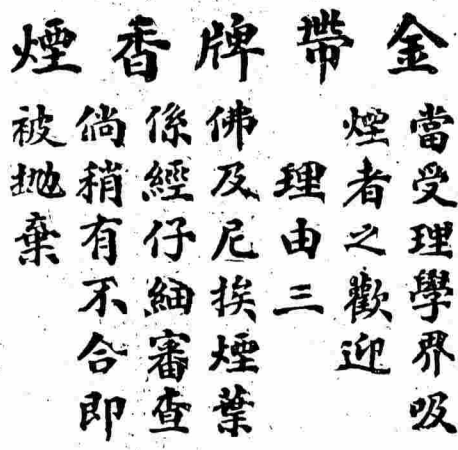 金帶牌香煙
當受理學界吸
煙者之歡迎
理由三
佛及尼挨煙葉
係經仔細審查
倘稍有不合即
被拋棄